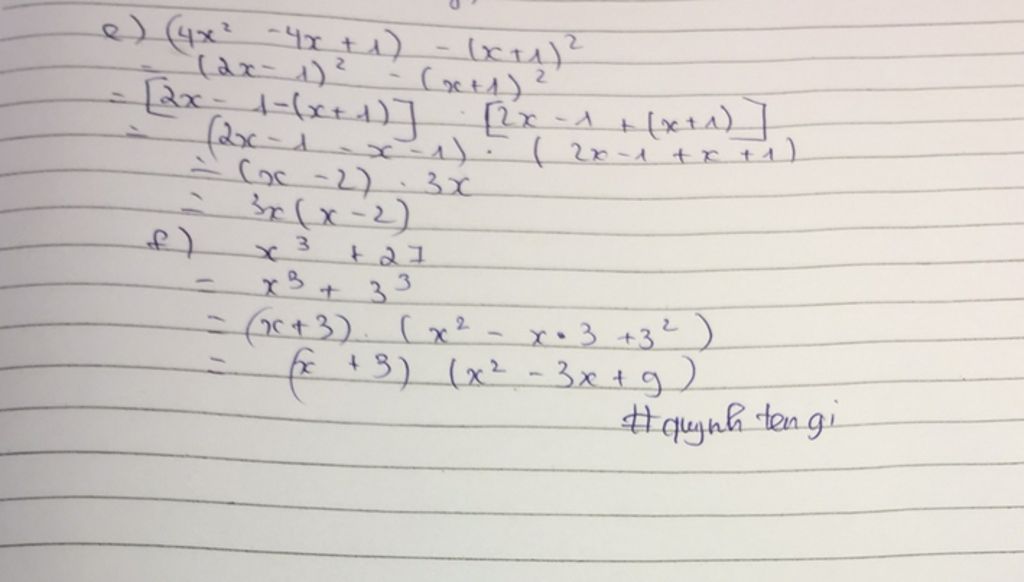 e) (4x² - 4x + 1) - (x+1)²
= (2x - 1)² - (x+1)²
= [2x - 1 - (x+1)] . [2x - 1 + (x+1)]
= (2x - 1 - x - 1) . (2x - 1 + x + 1)
= (x - 2) . 3x
= 3x(x - 2)
f) x³ + 27
= x³ + 3³
= (x+3) . (x² - x • 3 + 3²)
= (x + 3) (x² - 3x + 9)
#quynh ten gi